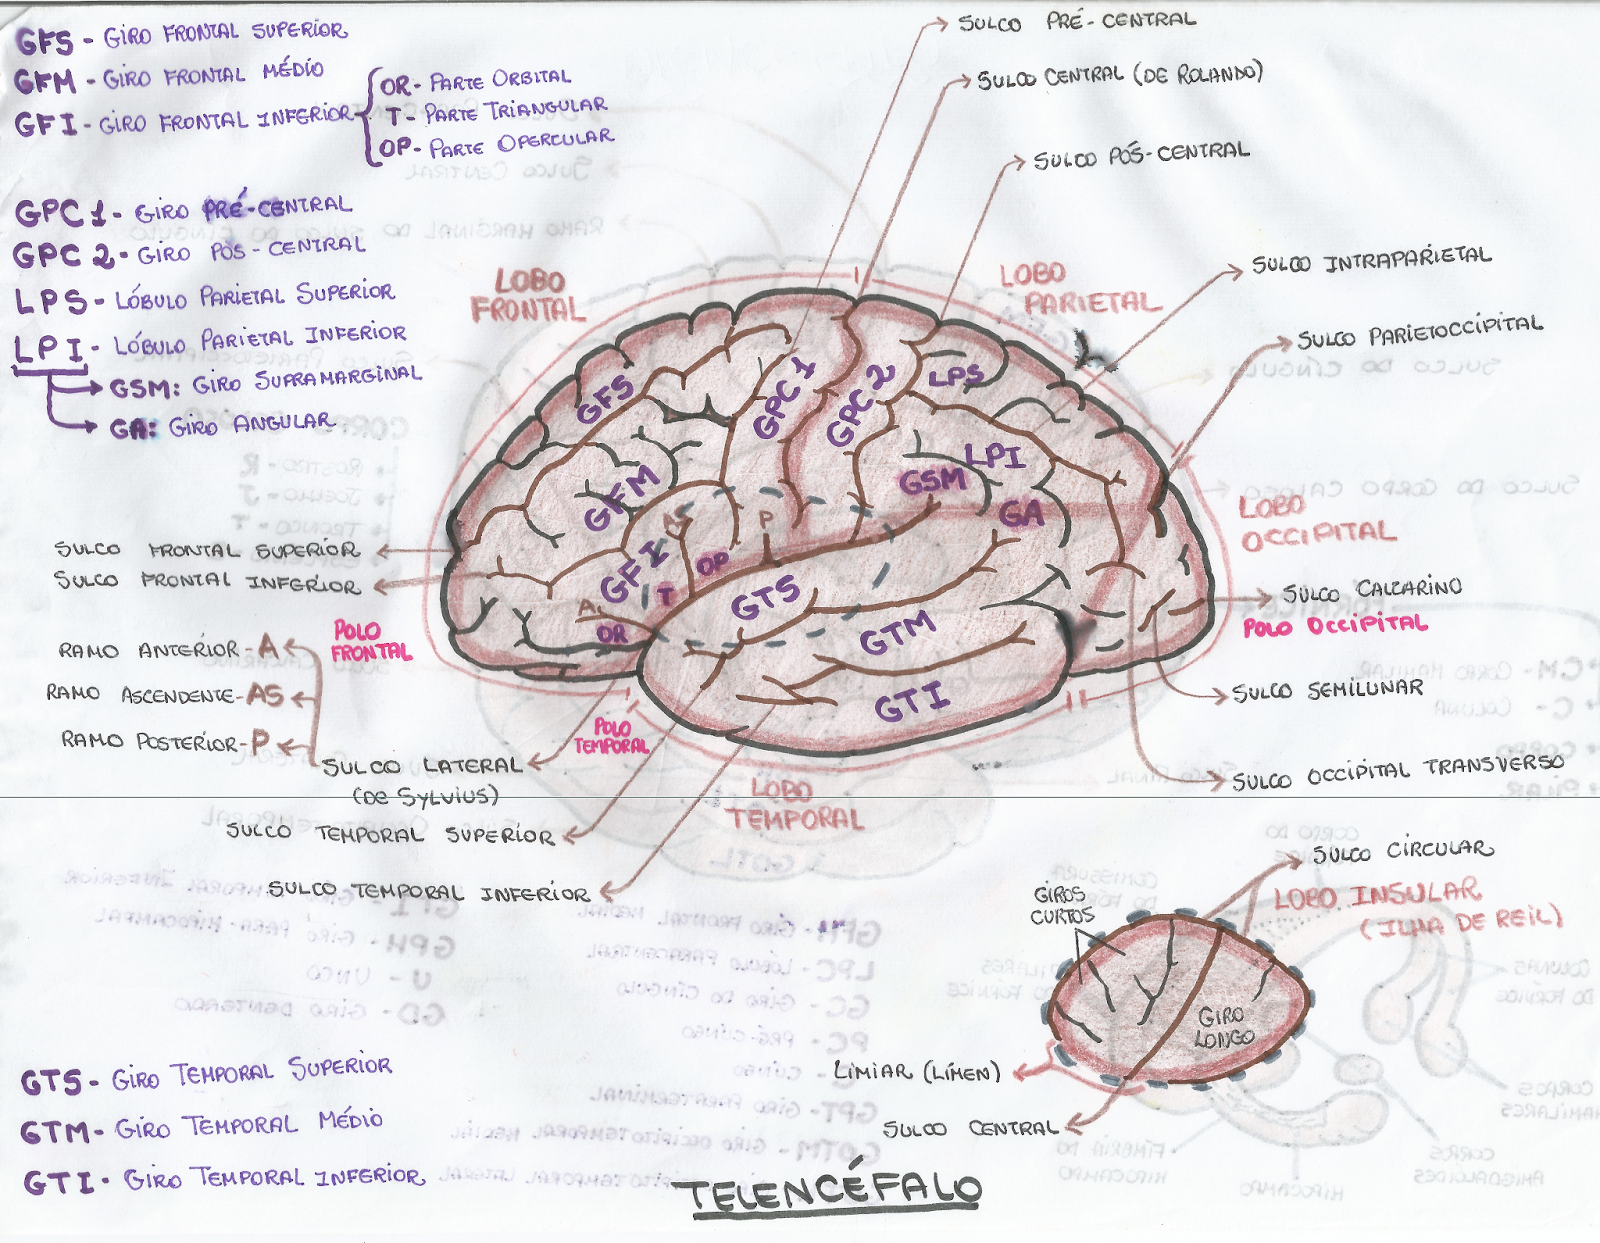 GFS - GIRO FRONTAL SUPERIOR
GFM - GIRO FRONTAL MÉDIO
GFI - GIRO FRONTAL INFERIOR
OR - PARTE ORBITAL
T - PARTE TRIANGULAR
OP - PARTE OPERCULAR
GPC 1 - GIRO PRÉ-CENTRAL
GPC 2 - GIRO PÓS-CENTRAL
LPS - LÓBULO PARIETAL SUPERIOR
LPI - LÓBULO PARIETAL INFERIOR
GSM: GIRO SUPRAMARGINAL
GA: GIRO ANGULAR
SULCO PRÉ-CENTRAL
SULCO CENTRAL (DE ROLANDO)
SULCO PÓS-CENTRAL
SULCO INTRAPARIETAL
SULCO PARIETOCCIPITAL
LOBO
FRONTAL
LOBO
PARIETAL
LOBO
OCCIPITAL
GFS
GPC 1
GPC 2
LPS
GFM
LPI
GSM
GA
AS
P
GFI
OP
T
A
OR
GTS
GTM
GTI
SULCO FRONTAL SUPERIOR
SULCO FRONTAL INFERIOR
POLO
FRONTAL
RAMO ANTERIOR - A
RAMO ASCENDENTE - AS
RAMO POSTERIOR - P
SULCO LATERAL
(DE SYLVIUS)
SULCO TEMPORAL SUPERIOR
SULCO TEMPORAL INFERIOR
POLO
TEMPORAL
LOBO
TEMPORAL
SULCO CALCARINO
POLO OCCIPITAL
SULCO SEMILUNAR
SULCO OCCIPITAL TRANSVERSO
SULCO CIRCULAR
LOBO INSULAR
(ILHA DE REIL)
GIROS
CURTOS
GIRO
LONGO
LIMIAR (LÍMEN)
SULCO CENTRAL
GTS - GIRO TEMPORAL SUPERIOR
GTM - GIRO TEMPORAL MÉDIO
GTI - GIRO TEMPORAL INFERIOR
TELENCÉFALO